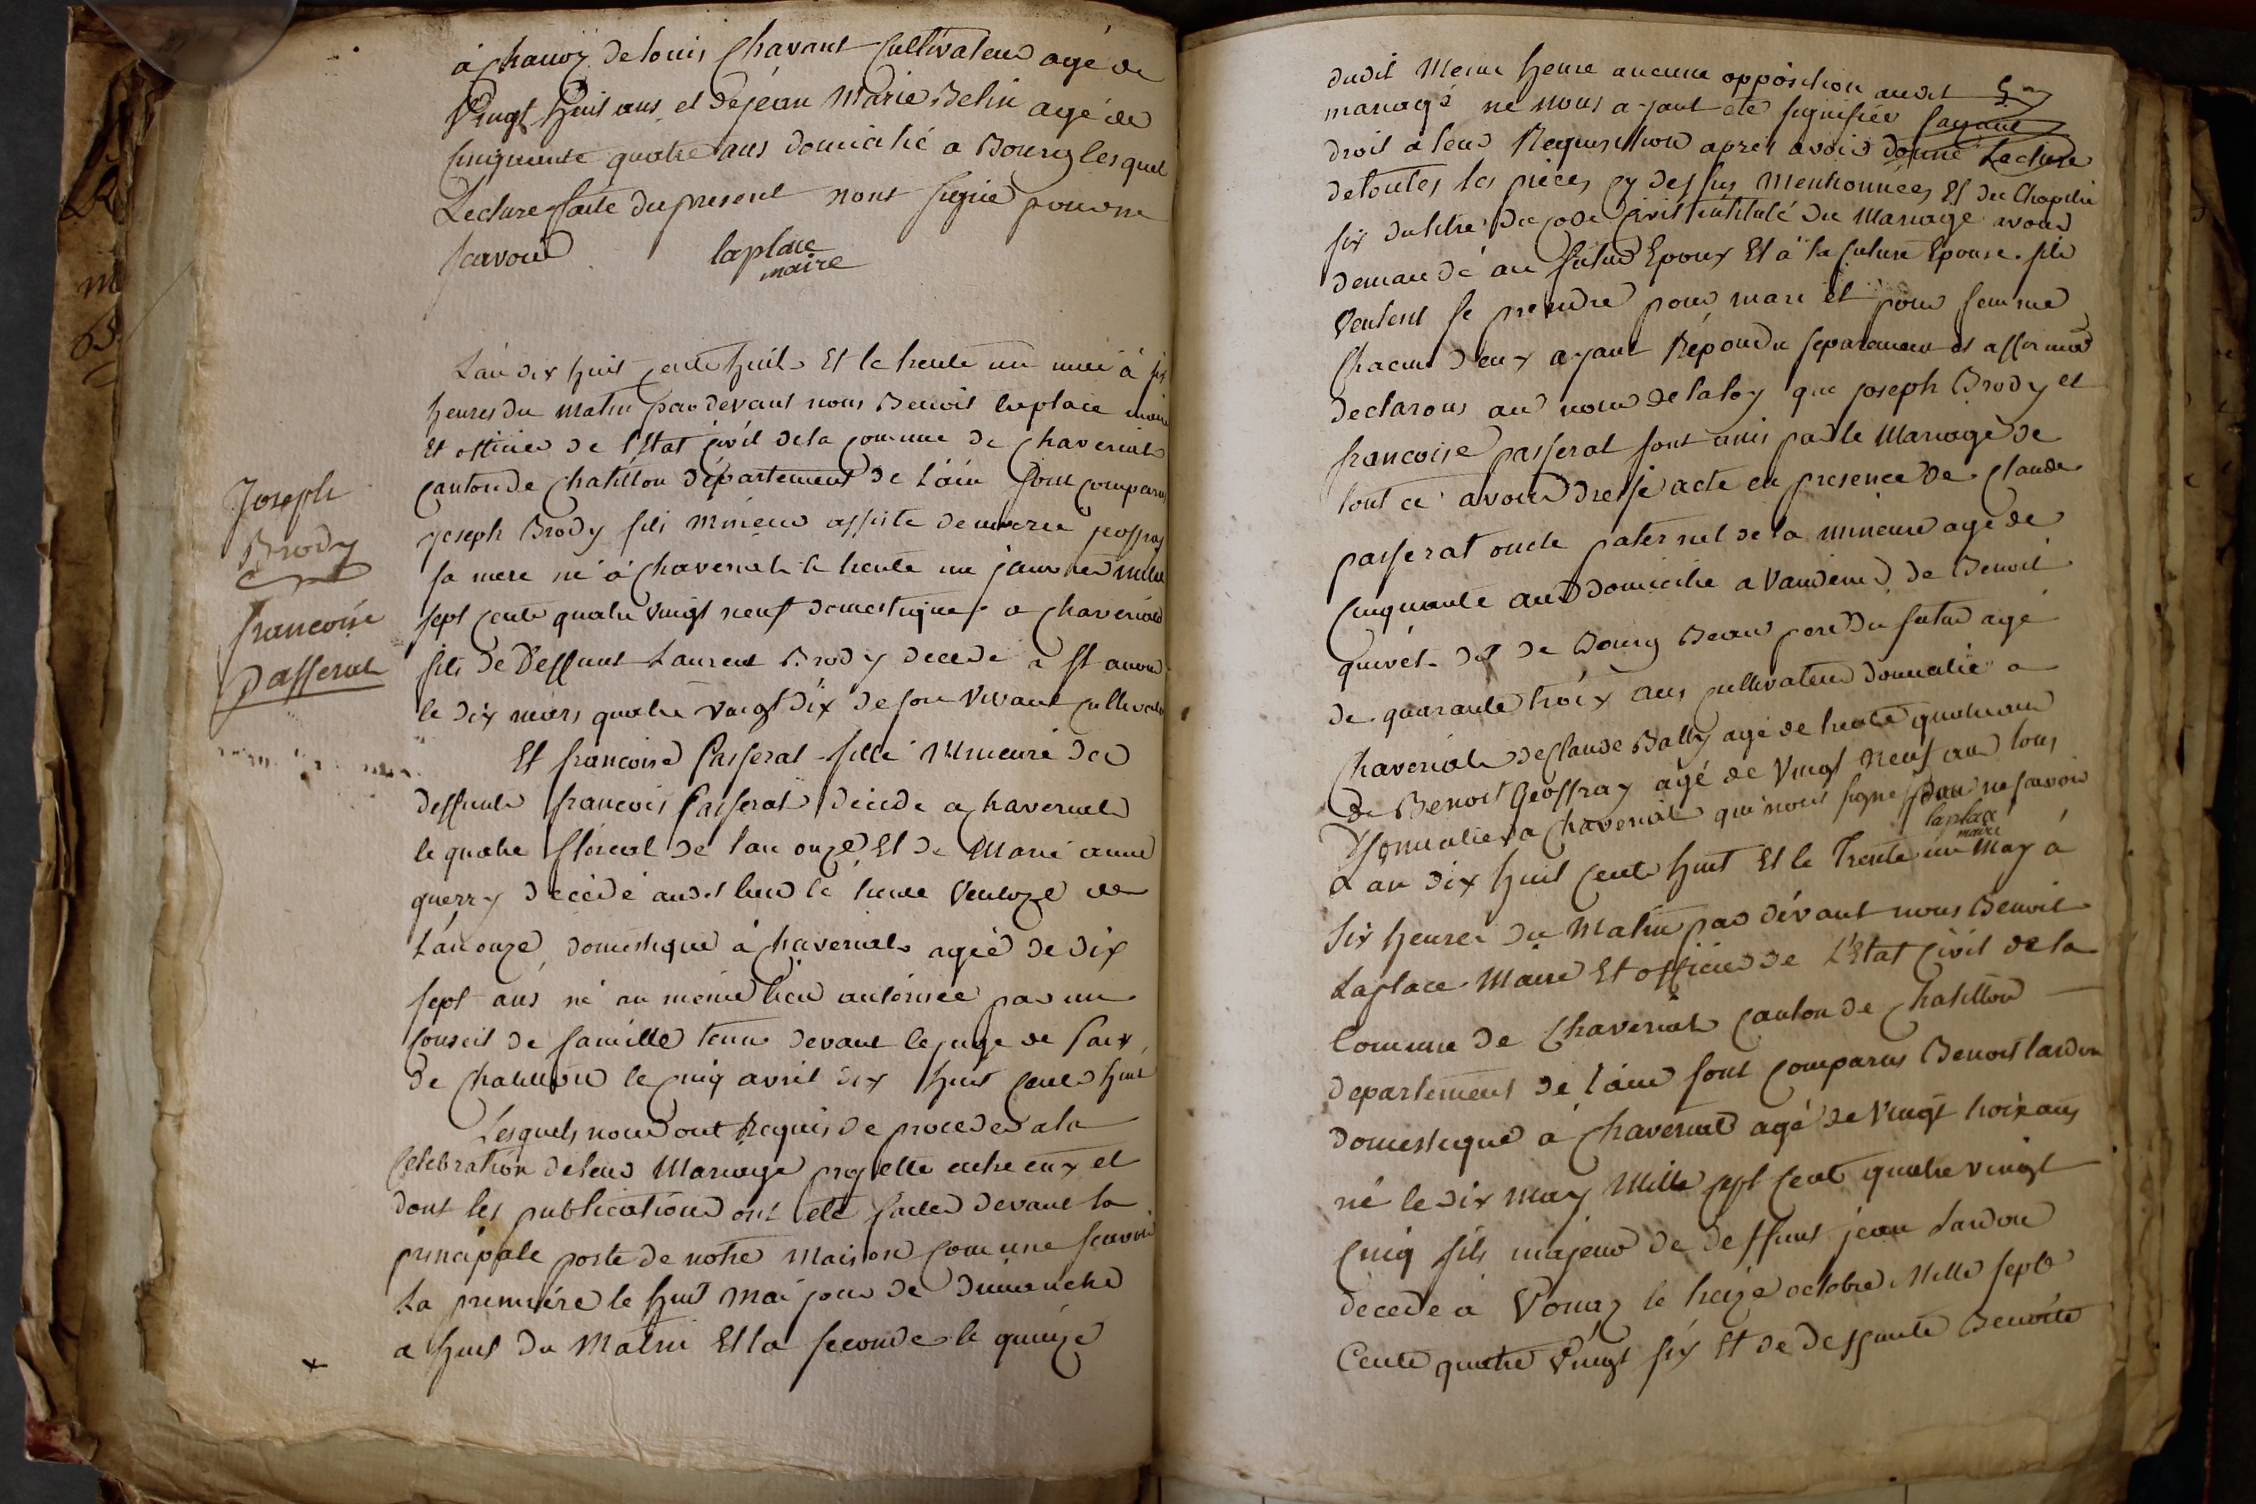 à chanoz de louis Chavant Cultivateur agé de
Vingt huit ans et de jean Marie Belin agé de
cinquante quatre ans domicilié a Bourg lesquel
Lecture faite du present nont signé pour ne
scavoir laplace
maire
L'an dix huit cent huit Et le trente un mai à six
heures du matin par devant nous Benoit laplace maire
Et officier de l'Etat civil de la commune de Chaveriat
canton de Chatillon département de L'ain sont comparus
joseph Brody fils mineur assisté de marie
sa mere né à Chaveriat le trente un janvier mille
sept cent quatre vingt neuf domestique a Chaveriat
fils de Deffunt Laurent Brody decedé a St
le dix mars quatre vingt dix de son vivant cultivateur
Joseph
Brody
francoise
passerat
Et francoise Passerat fille Mineure de
deffunt francois Passerat décédé a Chaveriat
le quatre floreal de l'an onze Et de Marie anne
guerry décédé audit lieu le trente Ventoze de
L'an onze, domestique à Chaveriat agée de dix
sept ans né au même lieu autorisée par un
Conseil de famille tenu devant le juge de Paix
de Chatillon le cinq avril dix huit cent huit
Lesquels nous ont Requis de proceder a la
Celebration de leur Mariage projetté entre eux et
dont les publications ont été faites devant la
principale porte de notre Maison commune scavoir
La premiére le huit mai jour de dimanche
a huit du Matin Et la seconde le quinze
dudit Meme heure aucune opposition audit
mariage ne nous a yant été signifiée faisant
droit a leur Requisition apres avoir donné Lecture
de toutes les pieces cy dessus Mentionnées Et du Chapitre
six du titre du code Civil intitulé du Mariage avons
demandé au futur Epoux Et à la future Epouse s'ils
veulent se prendre pour mari et pour femme
Chacun d'eux ayant Répondu separement et affirmé
declarons au nom de la loy que joseph Brody et
francoise passerat sont unis par le Mariage de
tout ce avons dressé acte en presence de Claude
passerat oncle paternel de la mineure agé de
Cinquante ans domicilié a Vandeins de Benoit
quivet dit de Bourg Beau pere du futur agé
de quarante trois ans cultivateur domicilié a
Chaveriat de Claude Bally agé de trente quatre ans
de Benoit Geoffray agé de Vingt neuf ans tous
Domicilies a Chaveriat qui nont signé pour ne savoir
laplace
maire
L'an dix huit cent huit Et le Trente un May à
Six heures du Matin par dévant nous Benoit
Laplace Maire Et officier de L'Etat Civil de la
Commune de Chaveriat Canton de Chatillon
departement de l'ain sont comparus Benoit lardon
domestique à Chaveriat agé de Vingt trois ans
né le dix may Mille sept cent quatre vingt
Cinq fils majeur de deffunt jean Lardon
décédé à Vonnaz le treize octobre Mille sept
Cent quatre Vingt six Et de deffunte Benoite